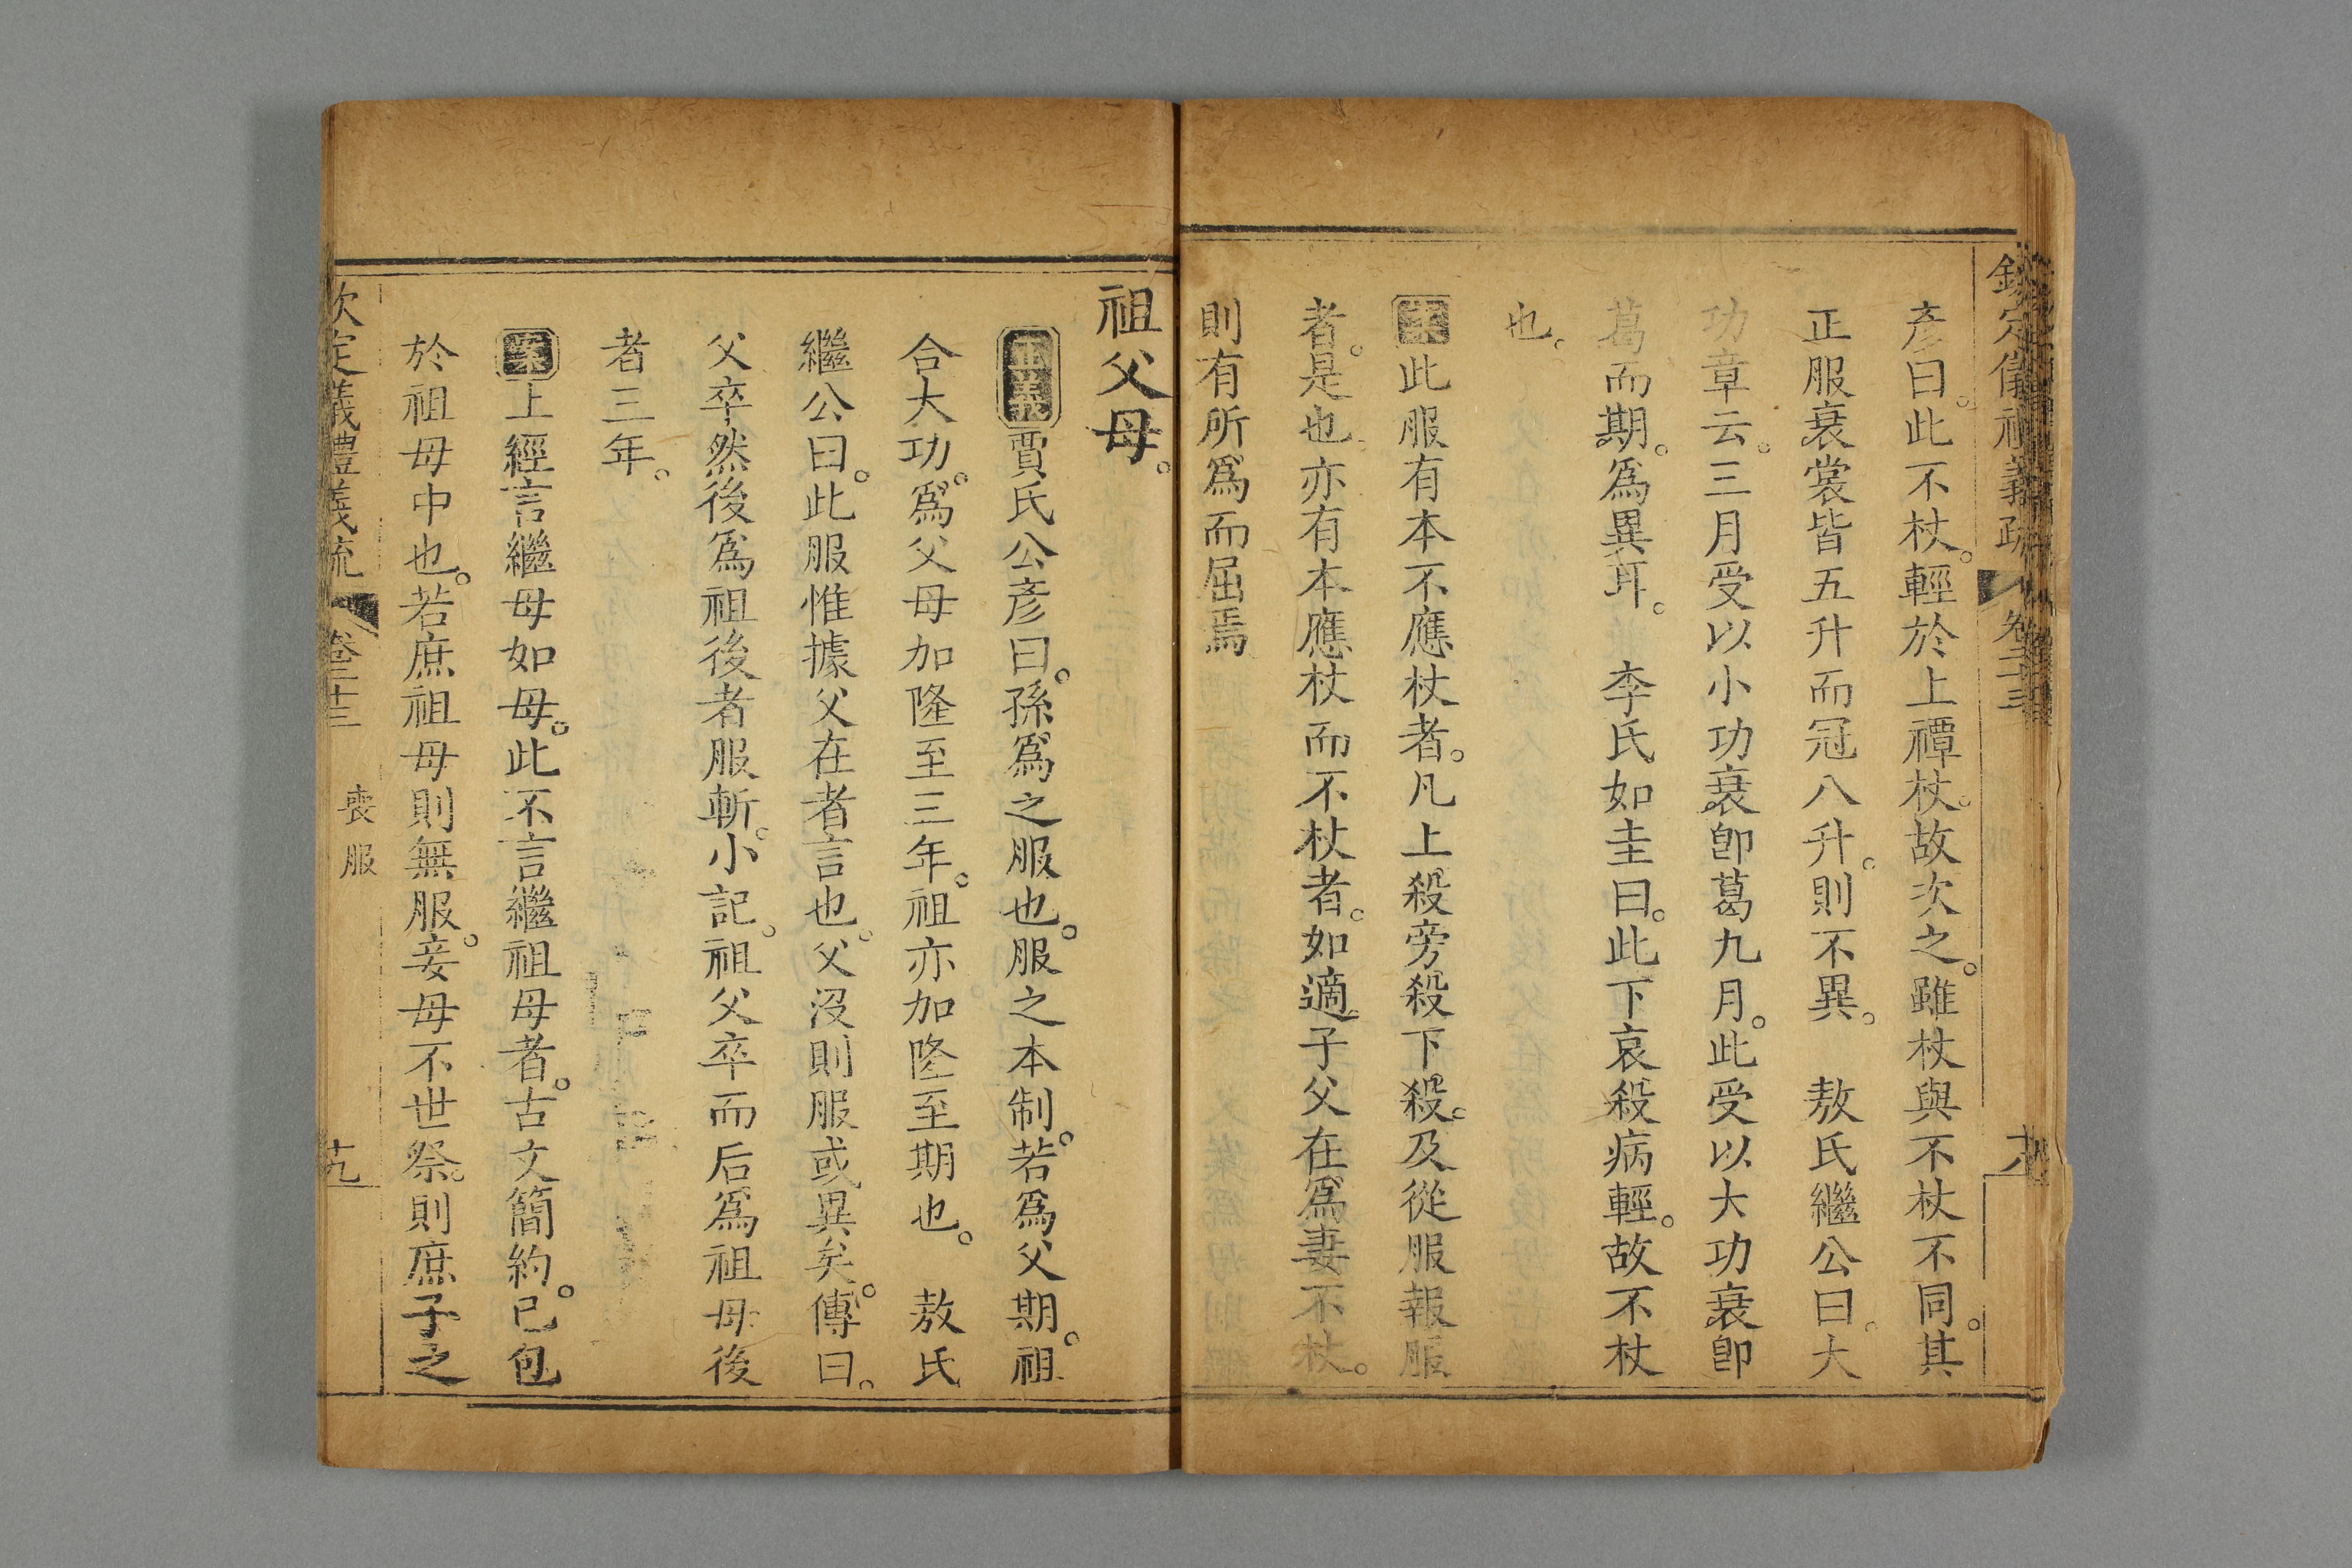 欽定儀禮義疏 卷二十三 十八
彥曰。此不杖。輕於上禫杖。故次之。雖杖與不杖不同。其
正服衰裳皆五升而冠八升。則不異。 敖氏繼公曰。大
功章云。三月受以小功衰卽葛九月。此受以大功衰卽
葛而期。爲異耳。 李氏如圭曰。此下哀殺病輕。故不杖
也。
案此服有本不應杖者。凡上殺旁殺下殺。及從服報服
者。是也亦有本應杖而不杖者。如適子父在爲妻不杖。
則有所爲而屈焉
祖父母。
正義賈氏公彥曰。孫爲之服也。服之本制。若爲父期。祖
合大功。爲父母加隆至三年。祖亦加隆至期也。 敖氏
繼公曰。此服惟據父在者言也。父沒則服或異矣。傳曰。
父卒然後爲祖後者服斬。小記。祖父卒而后爲祖母後
者三年。
案上經言繼母如母。此不言繼祖母者。古文簡約。已包
於祖母中也。若庶祖母則無服。妾母不世祭。則庶子之
欽定儀禮義疏 卷二十三 喪服 十九